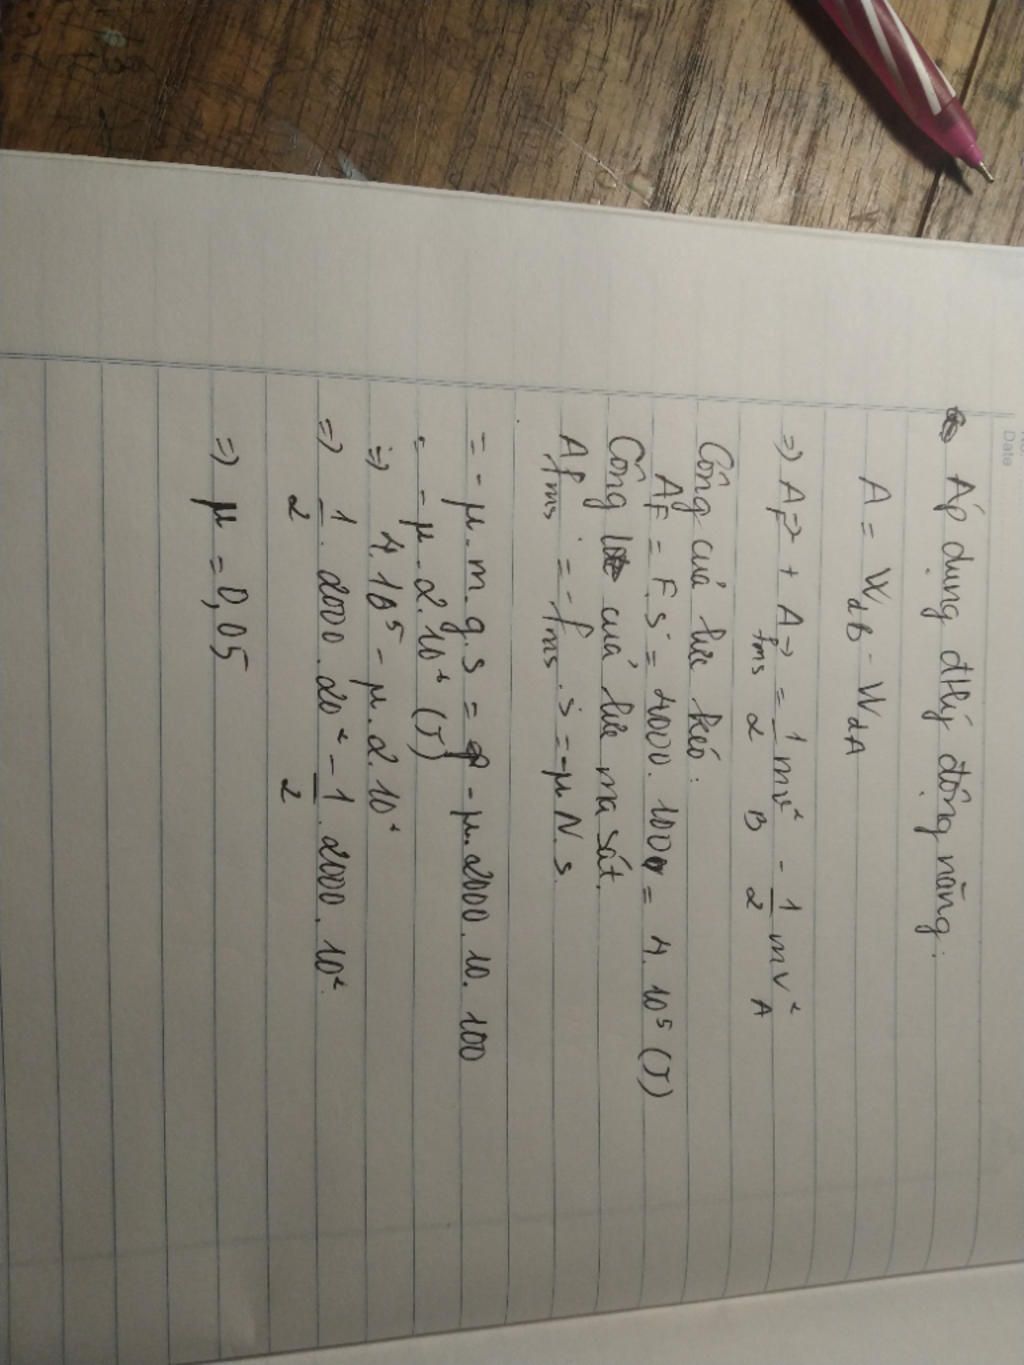 Date
Áp dụng đlý động năng.
A = WdB - WdA
=> AF→ + Afms→ = 1/2 mvB² - 1/2 mvA²
Công cuả lực kéo:
AF = F.S = 4000. 100 = 4. 10⁵ (J)
Công cuả lực ma sát.
Afms = -fms. s = -μ N. s.
= - μ. m. g. s = - μ. 2000. 10. 100
= - μ. 2. 10⁶ (J)
=> 4. 10⁵ - μ. 2. 10⁶
=> 1/2. 2000. 20² - 1/2. 2000. 10².
=> μ = 0,05